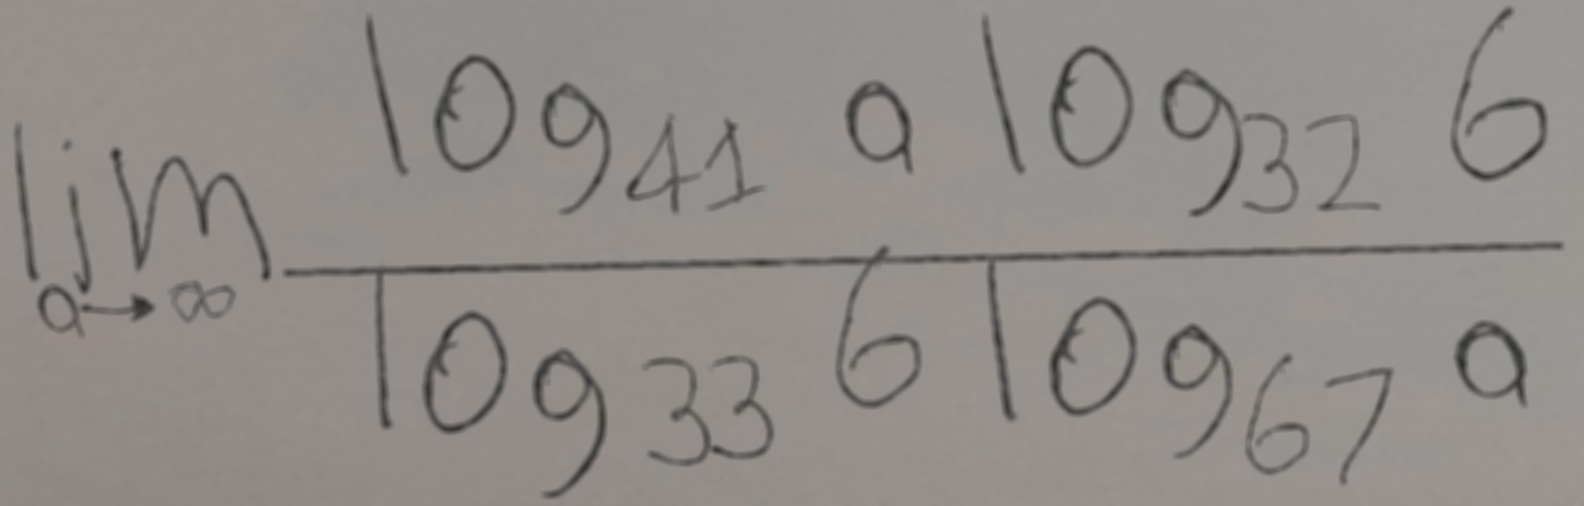 lim a→∞ (log₄₁ a log₃₂ 6) / (log₃₃ 6 log₆₇ a)